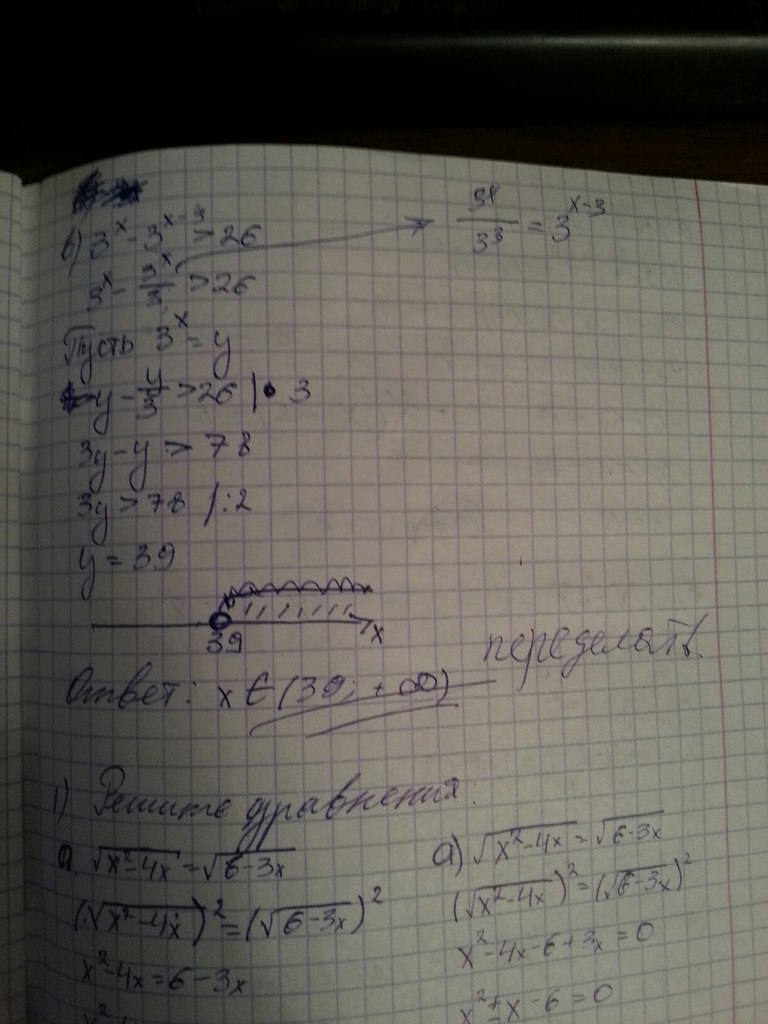 в) 3^x - 3^(x-3) > 26
3^x/3^3 = 3^(x-3)
3^x - 3^x/3 > 26
Пусть 3^x = y
y - y/3 > 26 | • 3
3y - y > 78
3y > 78 /:2
y = 39
39 x
Ответ: x ∈ (39; +∞)
переделать.
1) Решите уравнения:
а. √(x²-4x) = √(6-3x)
(√(x²-4x))² = (√(6-3x))²
x²-4x = 6-3x
а) √(x²-4x) = √(6-3x)
(√(x²-4x))² = (√(6-3x))²
x²-4x-6+3x = 0